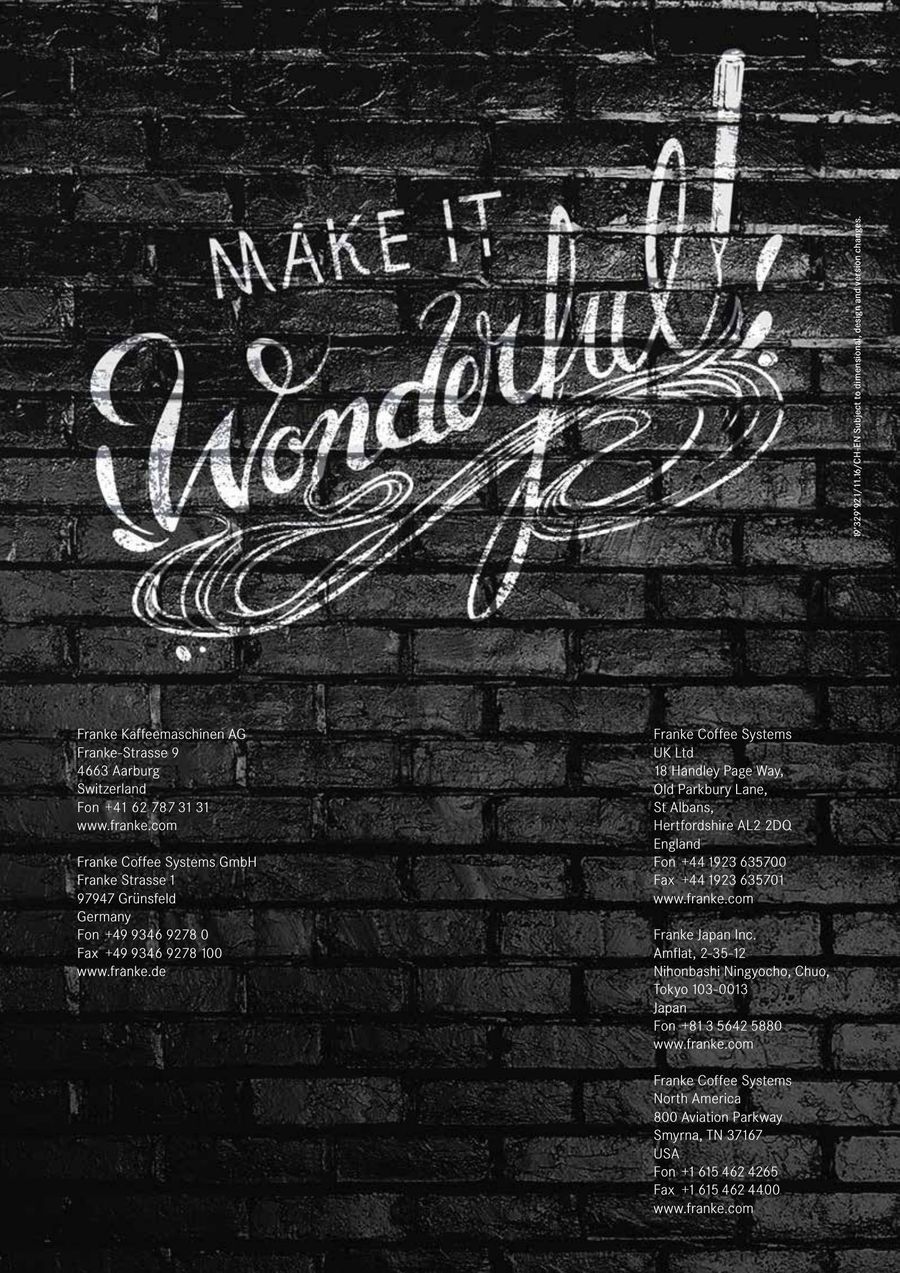 MAKE IT
Wonderful
19'329'921/11.16/CH-EN Subject to dimensional, design and version changes.
Franke Kaffeemaschinen AG
Franke-Strasse 9
4663 Aarburg
Switzerland
Fon +41 62 787 31 31
www.franke.com
Franke Coffee Systems GmbH
Franke Strasse 1
97947 Grünsfeld
Germany
Fon +49 9346 9278 0
Fax +49 9346 9278 100
www.franke.de
Franke Coffee Systems
UK Ltd
18 Handley Page Way,
Old Parkbury Lane,
St Albans,
Hertfordshire AL2 2DQ
England
Fon +44 1923 635700
Fax +44 1923 635701
www.franke.com
Franke Japan Inc.
Amflat, 2-35-12
Nihonbashi Ningyocho, Chuo,
Tokyo 103-0013
Japan
Fon +81 3 5642 5880
www.franke.com
Franke Coffee Systems
North America
800 Aviation Parkway
Smyrna, TN 37167
USA
Fon +1 615 462 4265
Fax +1 615 462 4400
www.franke.com